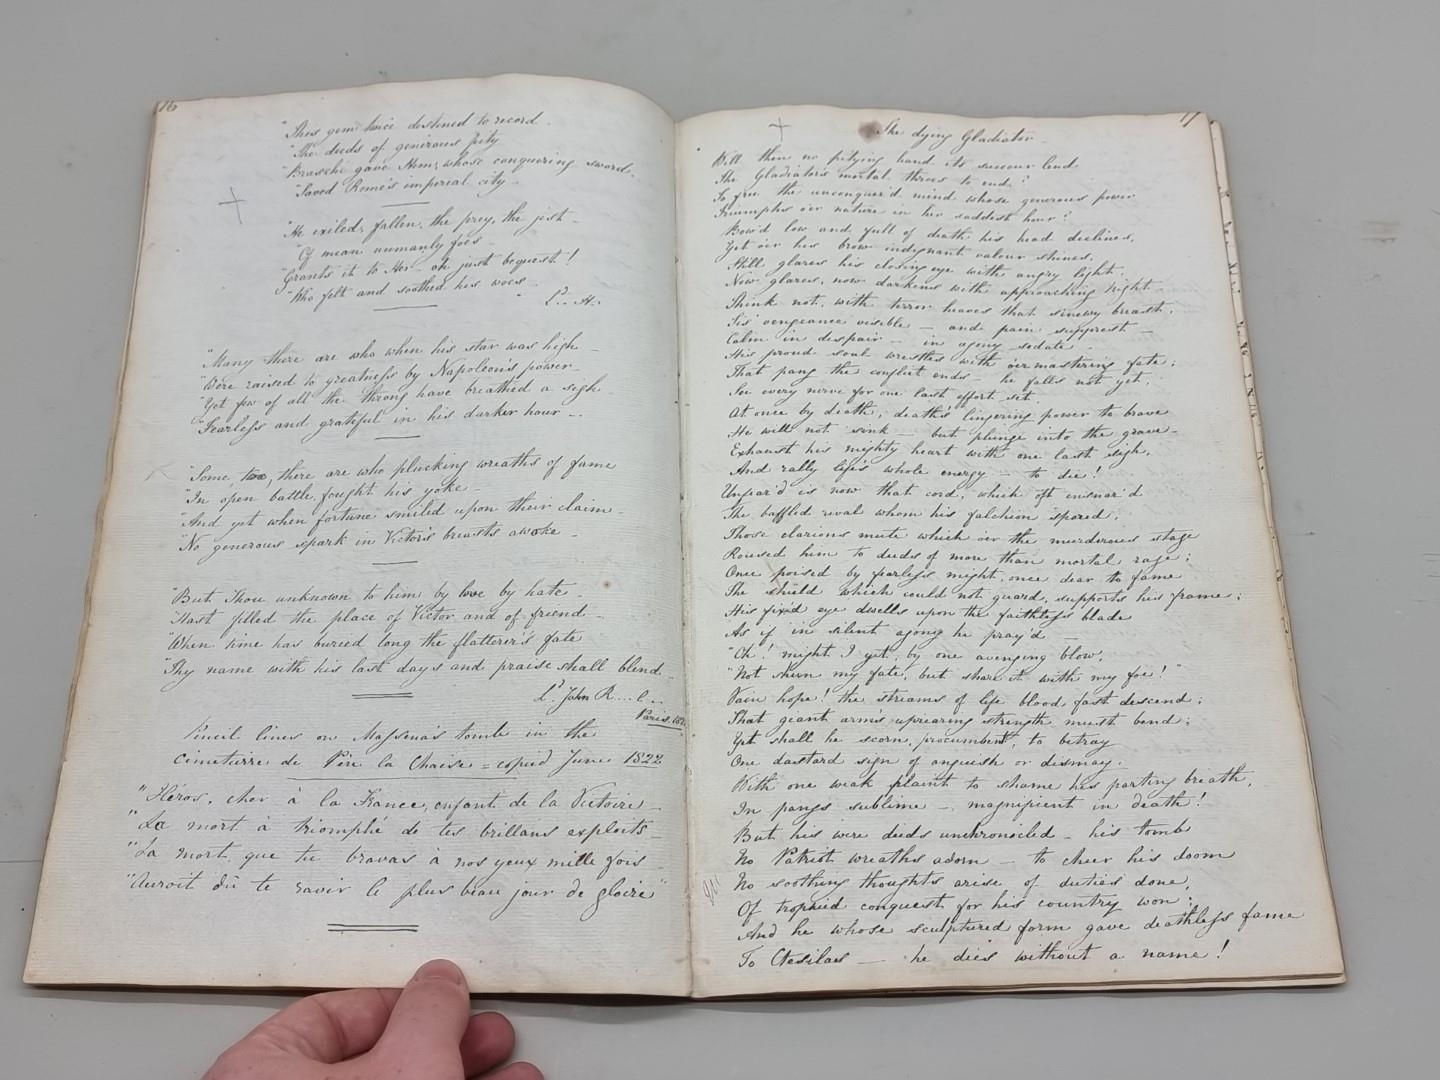 16
"This gem twice destined to record
"The deeds of generous Pity
"Braschi gave Him, whose conquering sword
"Saved Rome's imperial city –
"He exiled, fallen, the prey, the jest –
"Of mean unmanly foes –
"Grants it to Her – oh just bequest!
"Who felt and soothed his woes –
" Ld. H.
"Many there are who when his star was high –
"Were raised to greatness by Napoleon's power –
"Yet few of all the throng have breathed a sigh –
"Fearless and grateful in his darker hour –
"Some, too, there are who plucking wreaths of fame
"In open battle, fought his yoke –
"And yet when fortune smiled upon their claim –
"No generous spark in Victor's breasts awoke –
"But Thou unknown to him by love by hate –
"Hast filled the place of Victor and of friend –
"When time has buried long the flatterer's fate
"Thy name with his last days and praise shall blend –
Ld John R....l ..
Paris.
Pencil lines on Massena's tomb in the
cimetierre de Père la Chaise = copied June 1822
"Héros, cher à la France, enfant de la Victoire –
"La mort à triomphé de tes brillans exploits –
"La mort, que tu bravas à nos yeux mille fois –
"Auroit dû te ravir le plus beau jour de gloire"
17
The dying Gladiator –
Will then no pitying hand its succour lend
The Gladiator's mortal throes to end?
To free the unconquer'd mind whose generous power
Triumphs o'er nature in her saddest hour?
Bow'd low and full of death his head declines,
Yet o'er his brow indignant valour shines,
Still glares his closing eye with angry light,
Now glares, now darkens with approaching night –
Think not, with terror heaves that sinewy breast,
Tis' vengeance visible – and pain supprest –
Calm in despair – in agony sedate –
His proud soul wrestles with o'er mastering fate;
That pang the conflict ends – he falls not yet,
See every nerve for one last effort set.
At once by death, death's lingering power to brave
He will not sink – but plunge into the grave –
Exhaust his mighty heart with one last sigh,
And rally life's whole energy – to die!
Unfear'd is now that cord, which oft ensnar'd
The baffled rival whom his falchion spared;
Those clarions mute which o'er the murderous stage
Roused him to deeds of more than mortal rage;
Once poised by fearless might, once dear to fame
The shield which could not guard, supports his frame;
His fix'd eye dwells upon the faithless blade
As if in silent agony he pray'd –
"Oh! might I yet, by one avenging blow,
"Not shun my fate, but share it with my foe!"
Vain hope! the streams of life blood fast descend;
That geant arm's uprearing strength must bend;
Yet shall he scorn, procumbent, to betray
One dastard sign of anguish or dismay.
With one weak plaint to shame his parting breath,
In pangs sublime – magnificent in death!
But his were deeds unchronicled – his tomb
No Patriot wreaths adorn – to cheer his doom
No soothing thoughts arise of duties done,
Of trophied conquest for his country won;
And he whose sculptured form gave deathless fame
To Ctesilas – he dies without a name!